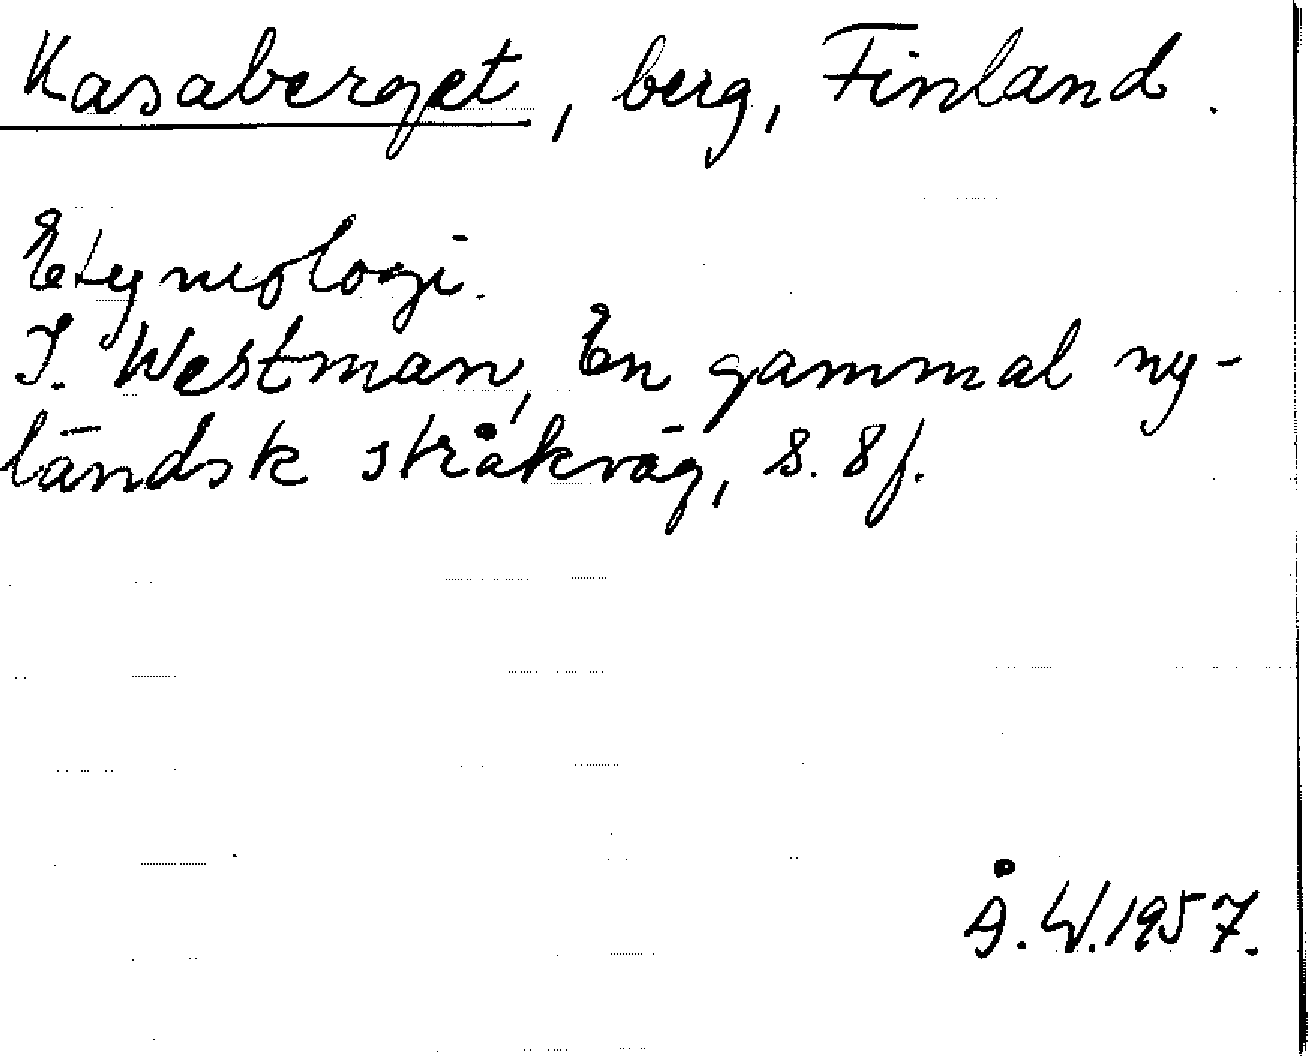 Kasaberget, berg, Finland.
Etymologi.
I. Westman, En gammal ny-
ländsk stråkväg, s. 8f.
Å. W. 1957.